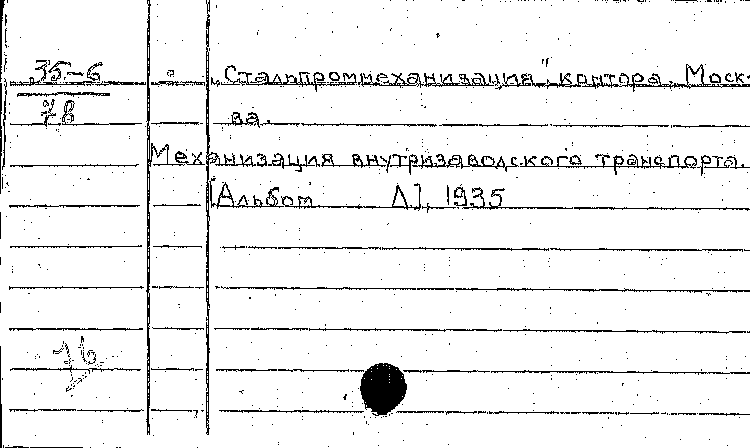 35-6 „Сталъпроммеханизация", контора. Моск-
78 ва.
Механизация внутризаводского транспорта.
[Альбом Л], 1935